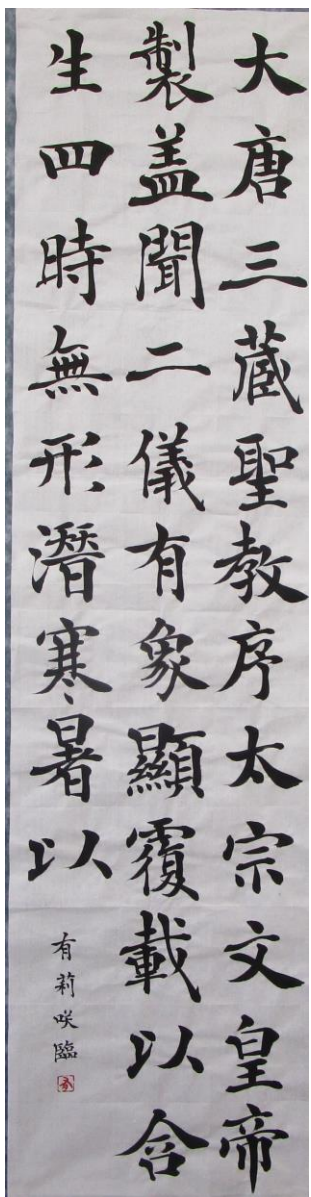 大唐三蔵聖教序太宗文皇帝
製盖聞二儀有象顯覆載以含
生四時無形潛寒暑以
有莉咲臨